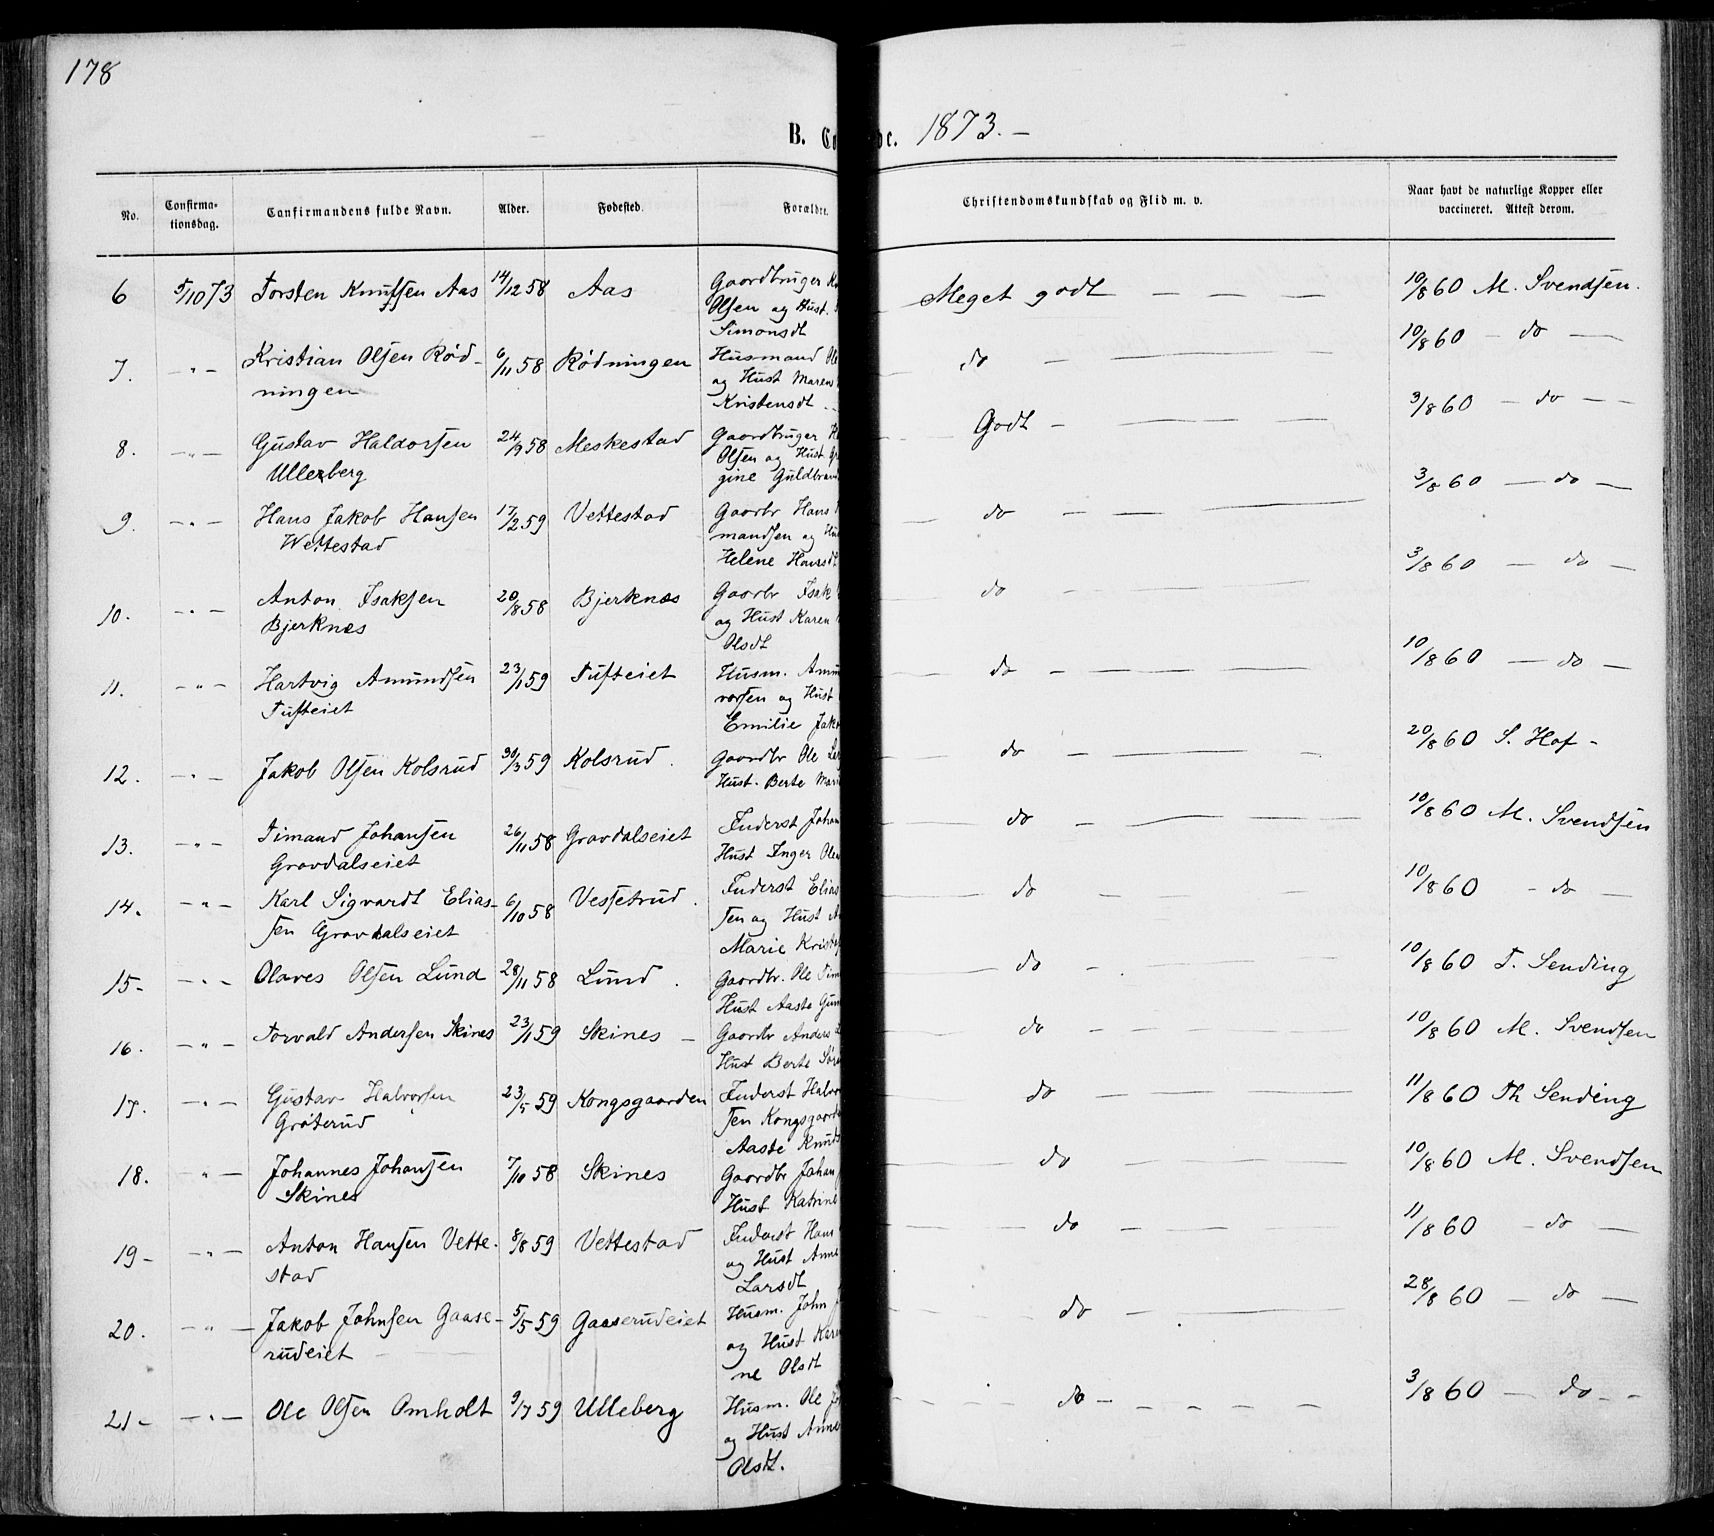 178
B. Co de. 1873. –
No. Confirma- tionsdag. Confirmandens fulde Navn. Alder. Fødested. Forældre. Christendomskundskab og Flid m. v. Naar havt de naturlige Kopper eller vaccineret. Attest derom.
6 5/10 73 Torsten Knutsen Aas 14/12 58 Aas Gaardbruger Meget godt — — — 10/8 60 M. Svendsen.
Olsen og Hust.
Simonsdt
7. – „ – Kristian Olsen Rød- 6/11 58 Rødningen Husmand Ole do – — — 10/8 60 – do —
ningen og Hust Maren
Kristensdt
8. – „ – Gustav Haldorsen 24/9 58 Meskestad Gaardbruger Godt – — — 3/8 60 – do – –
Ulleberg Olsen og Hust
gine Guldbran
9. – „ – Hans Jakob Hansen 17/2 59 Vettestad Gaardbr Hans do – — — 3/8 60 — do —
Wettestad mandsen og Hu
Helene Hansdt
10. – „ – Anton Isaksen 20/8 58 Bjerknes Gaardbr Isak do – — — 3/8 60 – do —
Bjerknes og Hust Karen
Olsdt
11. – „ – Hartvig Amundsen 23/1 59 Tufteiet Husm. Amu do – — — 10/8 60 — do —
Tufteiet vorsen og Hust
Emilie Jak
12. – „ – Jakob Olsen Kolsrud 30/3 59 Kolsrud. Gaardbr Ole La do – — — 20/8 60 S. Hof –
Hust. Berte Mari
13. – „ – Timand Johansen 26/11 58 Gravdalseiet Inderst Johan do – — — 10/8 60 M. Svendsen
Gravdalseiet Hust Inger Ole
14. – „ – Karl Sigvardt Elias- 6/10 58 Vessetrud. Inderst Elias do – — — 10/8 60 – do —
sen Gravdalseiet sen og Hust A
Marie Krist
15 – – „ – Olaves Olsen Lund 28/11 58 Lund. Gaardbr. Ole Tim do – — — 10/8 60 T. Sending
Hust Aaste Gun
16. – „ – Torvald Andersen Skines 23/1 59 Skines – Gaardbr Anders do – — — 10/8 60 M. Svendsen
Hust Berte Sør
17. – „ – Gustav Halvorsen 23/5 59 Kongsgaarden Inderst Halvor do – — — 11/8 60 Th Sending
Grøterud sen Kongsgaard
Aaste Knuds
18. „ – Johannes Johansen 7/10 58 Skines Gaardbr Johan do – — — 10/8 60 M. Svendsen
Skines Hust Katrine
19 – – „ – Anton Hansen Vette- 8/8 59 Vettestad Inderst Hans do – — — 11/8 60 – do —
stad og Hust Anne
Larsdt
20. – „ – Jakob Johnsen Gaase- 5/5 59 Gaaserudeiet Husm. John do – — — 28/8 60 – do —
rudeiet og Hust Kare
ne Olsdt
21 – – „ – Ole Olsen Omholt 9/7 59 Ulleberg Husm. Ole do – – – – – 3/8 60 — do – –
og Hust Anne
Olsdt.